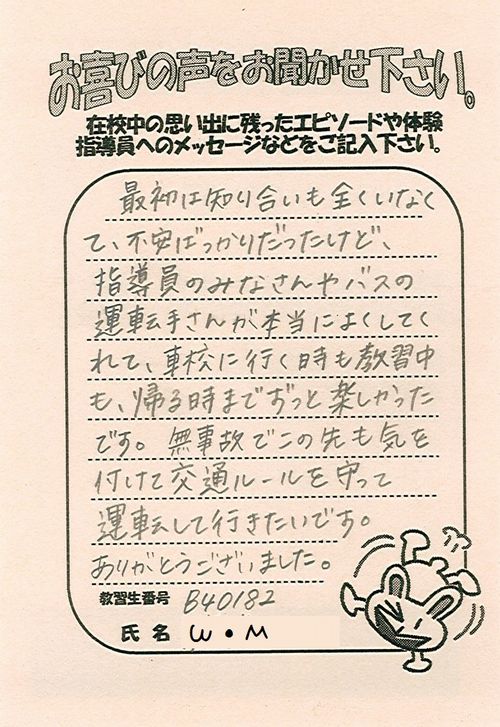 お喜びの声をお聞かせ下さい。
在校中の思い出に残ったエピソードや体験
指導員へのメッセージなどをご記入下さい。
最初は知り合いも全くいなく
て、不安ばっかりだったけど、
指導員のみなさんやバスの
運転手さんが本当によくしてく
れて、車校に行く時も教習中
も、帰る時までずっと楽しかった
です。無事故でこの先も気を
付けて交通ルールを守って
運転して行きたいです。
ありがとうございました。
教習生番号 B40182
氏名 W・M